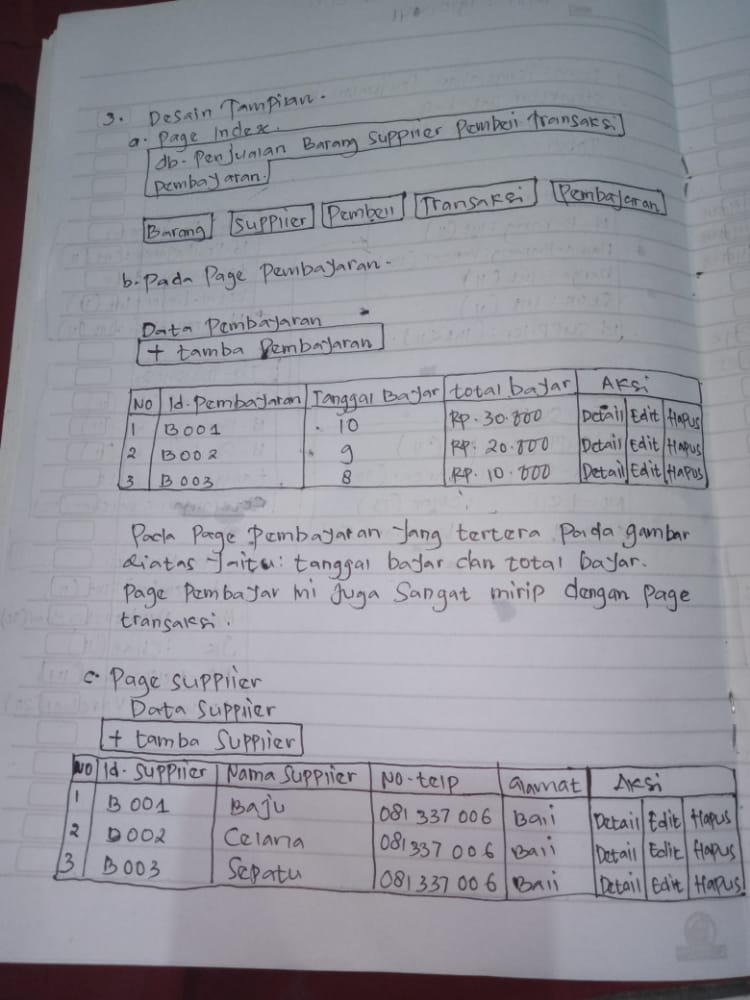 3. Desain Tampilan.
a. Page Index.
db. Penjualan Barang Supplier Pembeli Transaksi
pembayaran.
Barang Supplier Pembeli Transaksi Pembayaran
b. Pada Page Pembayaran.
Data Pembayaran
+ tamba Pembayaran
NO Id. Pembayaran Tanggal Bayar total bayar Aksi
1 B001 10 Rp. 30.000 Detail Edit Hapus
2 B002 9 Rp. 20.000 Detail Edit Hapus
3 B003 8 Rp. 10.000 Detail Edit Hapus
Pada Page Pembayaran yang tertera pada gambar
diatas yaitu: tanggal bayar dan total bayar.
Page Pembayar ini Juga Sangat mirip dengan Page
transaksi.
c. Page Supplier
Data Supplier
+ tamba Supplier
NO Id. Supplier Nama Supplier NO-telp alamat Aksi
1 B001 Baju 081 337 006 Bali Detail Edit Hapus
2 B002 Celana 081 337 006 Bali Detail Edit Hapus
3 B003 Sepatu 081 337 006 Bali Detail Edit Hapus